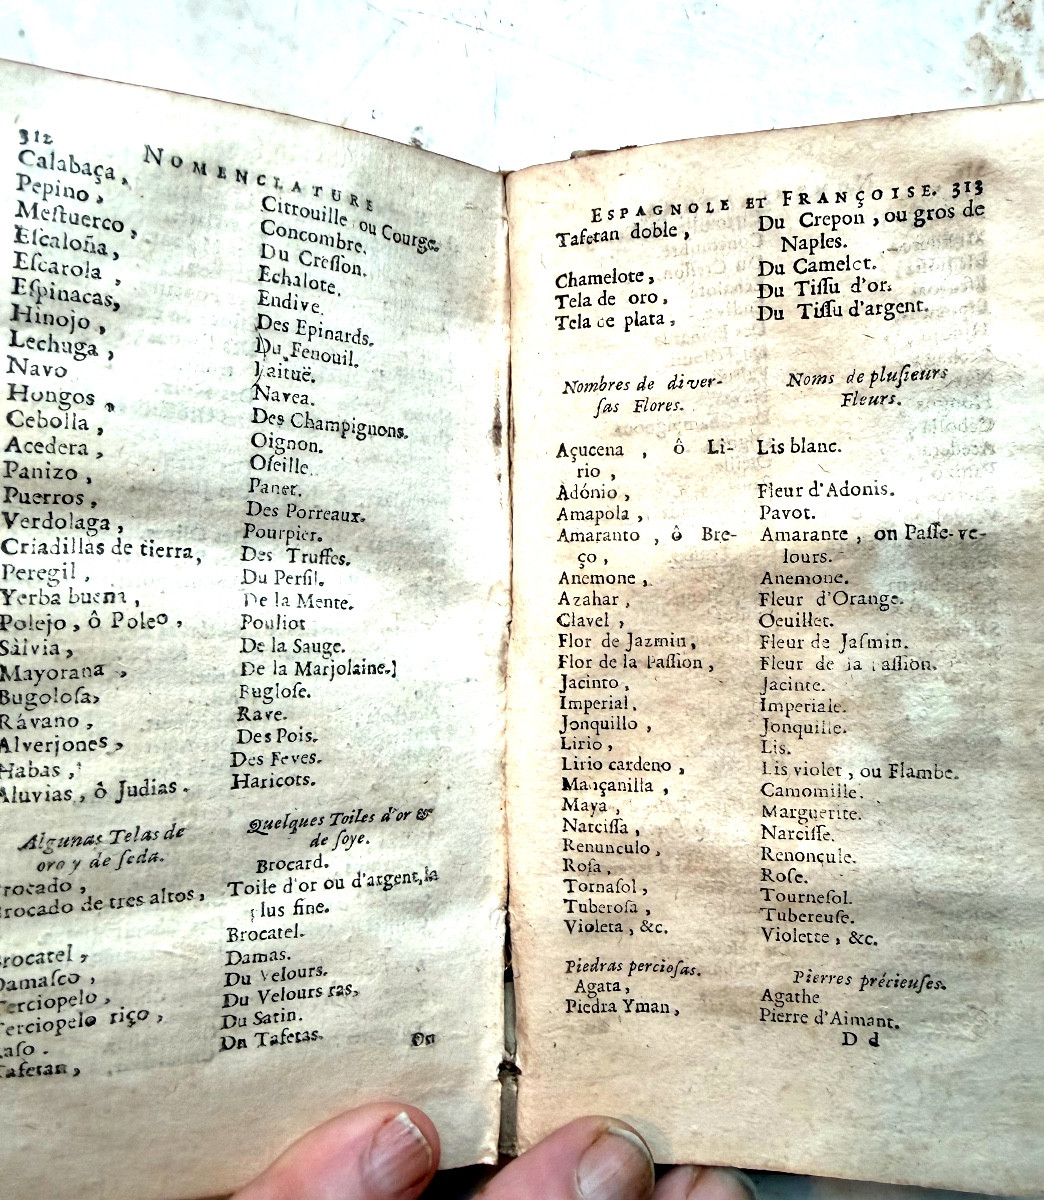 312 NOMENCLATURE
Calabaça, Citrouille ou Courge.
Pepino, Concombre.
Meſtuerco, Du Creſſon.
Eſcaloña, Echalote.
Eſcarola, Endive.
Eſpinacas, Des Epinards.
Hinojo, Du Fenouil.
Lechuga, Laituë.
Navo Navea.
Hongos, Des Champignons.
Cebolla, Oignon.
Acedera, Oſeille.
Panizo, Panet.
Puerros, Des Porreaux.
Verdolaga, Pourpier.
Criadillas de tierra, Des Truffes.
Peregil, Du Perſil.
Yerba buena, De la Mente.
Polejo, ô Poleo, Pouliot
Sàlvia, De la Sauge.
Mayorana, De la Marjolaine.]
Bugoloſa, Bugloſe.
Rávano, Rave.
Alverjones, Des Pois.
Habas, Des Feves.
Aluvias, ô Judias. Haricots.
Algunas Telas de Quelques Toiles d'or &
oro y de ſeda. de ſoye.
rocado, Brocard.
rocado de tres altos, Toile d'or ou d'argent, la
plus fine.
rocatel, Brocatel.
Damaſco, Damas.
erciopelo, Du Velours.
erciopelo riço, Du Velours ras,
aſo. Du Satin.
afetan, Du Tafetas.
Du
ESPAGNOLE ET FRANÇOISE. 313
Tafetan doble, Du Crepon, ou gros de
Naples.
Chamelote, Du Camelot.
Tela de oro, Du Tiſſu d'or.
Tela de plata, Du Tiſſu d'argent.
Nombres de diver- Noms de pluſieurs
ſas Flores. Fleurs.
Açucena, ô Li- Lis blanc.
rio,
Adónio, Fleur d'Adonis.
Amapola, Pavot.
Amaranto, ô Bre- Amarante, on Paſſe-ve-
ço, lours.
Anemone, Anemone.
Azahar, Fleur d'Orange.
Clavel, Oeuillet.
Flor de Jazmin, Fleur de Jaſmin.
Flor de la Paſſion, Fleur de la Paſſion.
Jacinto, Jacinte.
Imperial, Imperiale.
Jonquillo, Jonquille.
Lirio, Lis.
Lirio cardeno, Lis violet, ou Flambe.
Mançanilla, Camomille.
Maya, Marguerite.
Narciſſa, Narciſſe.
Renunculo, Renonçule.
Roſa, Roſe.
Tornaſol, Tourneſol.
Tuberoſa, Tubereuſe.
Violeta, &c. Violette, &c.
Piedras percioſas. Pierres précieuſes.
Agata, Agathe
Piedra Yman, Pierre d'Aimant.
D d